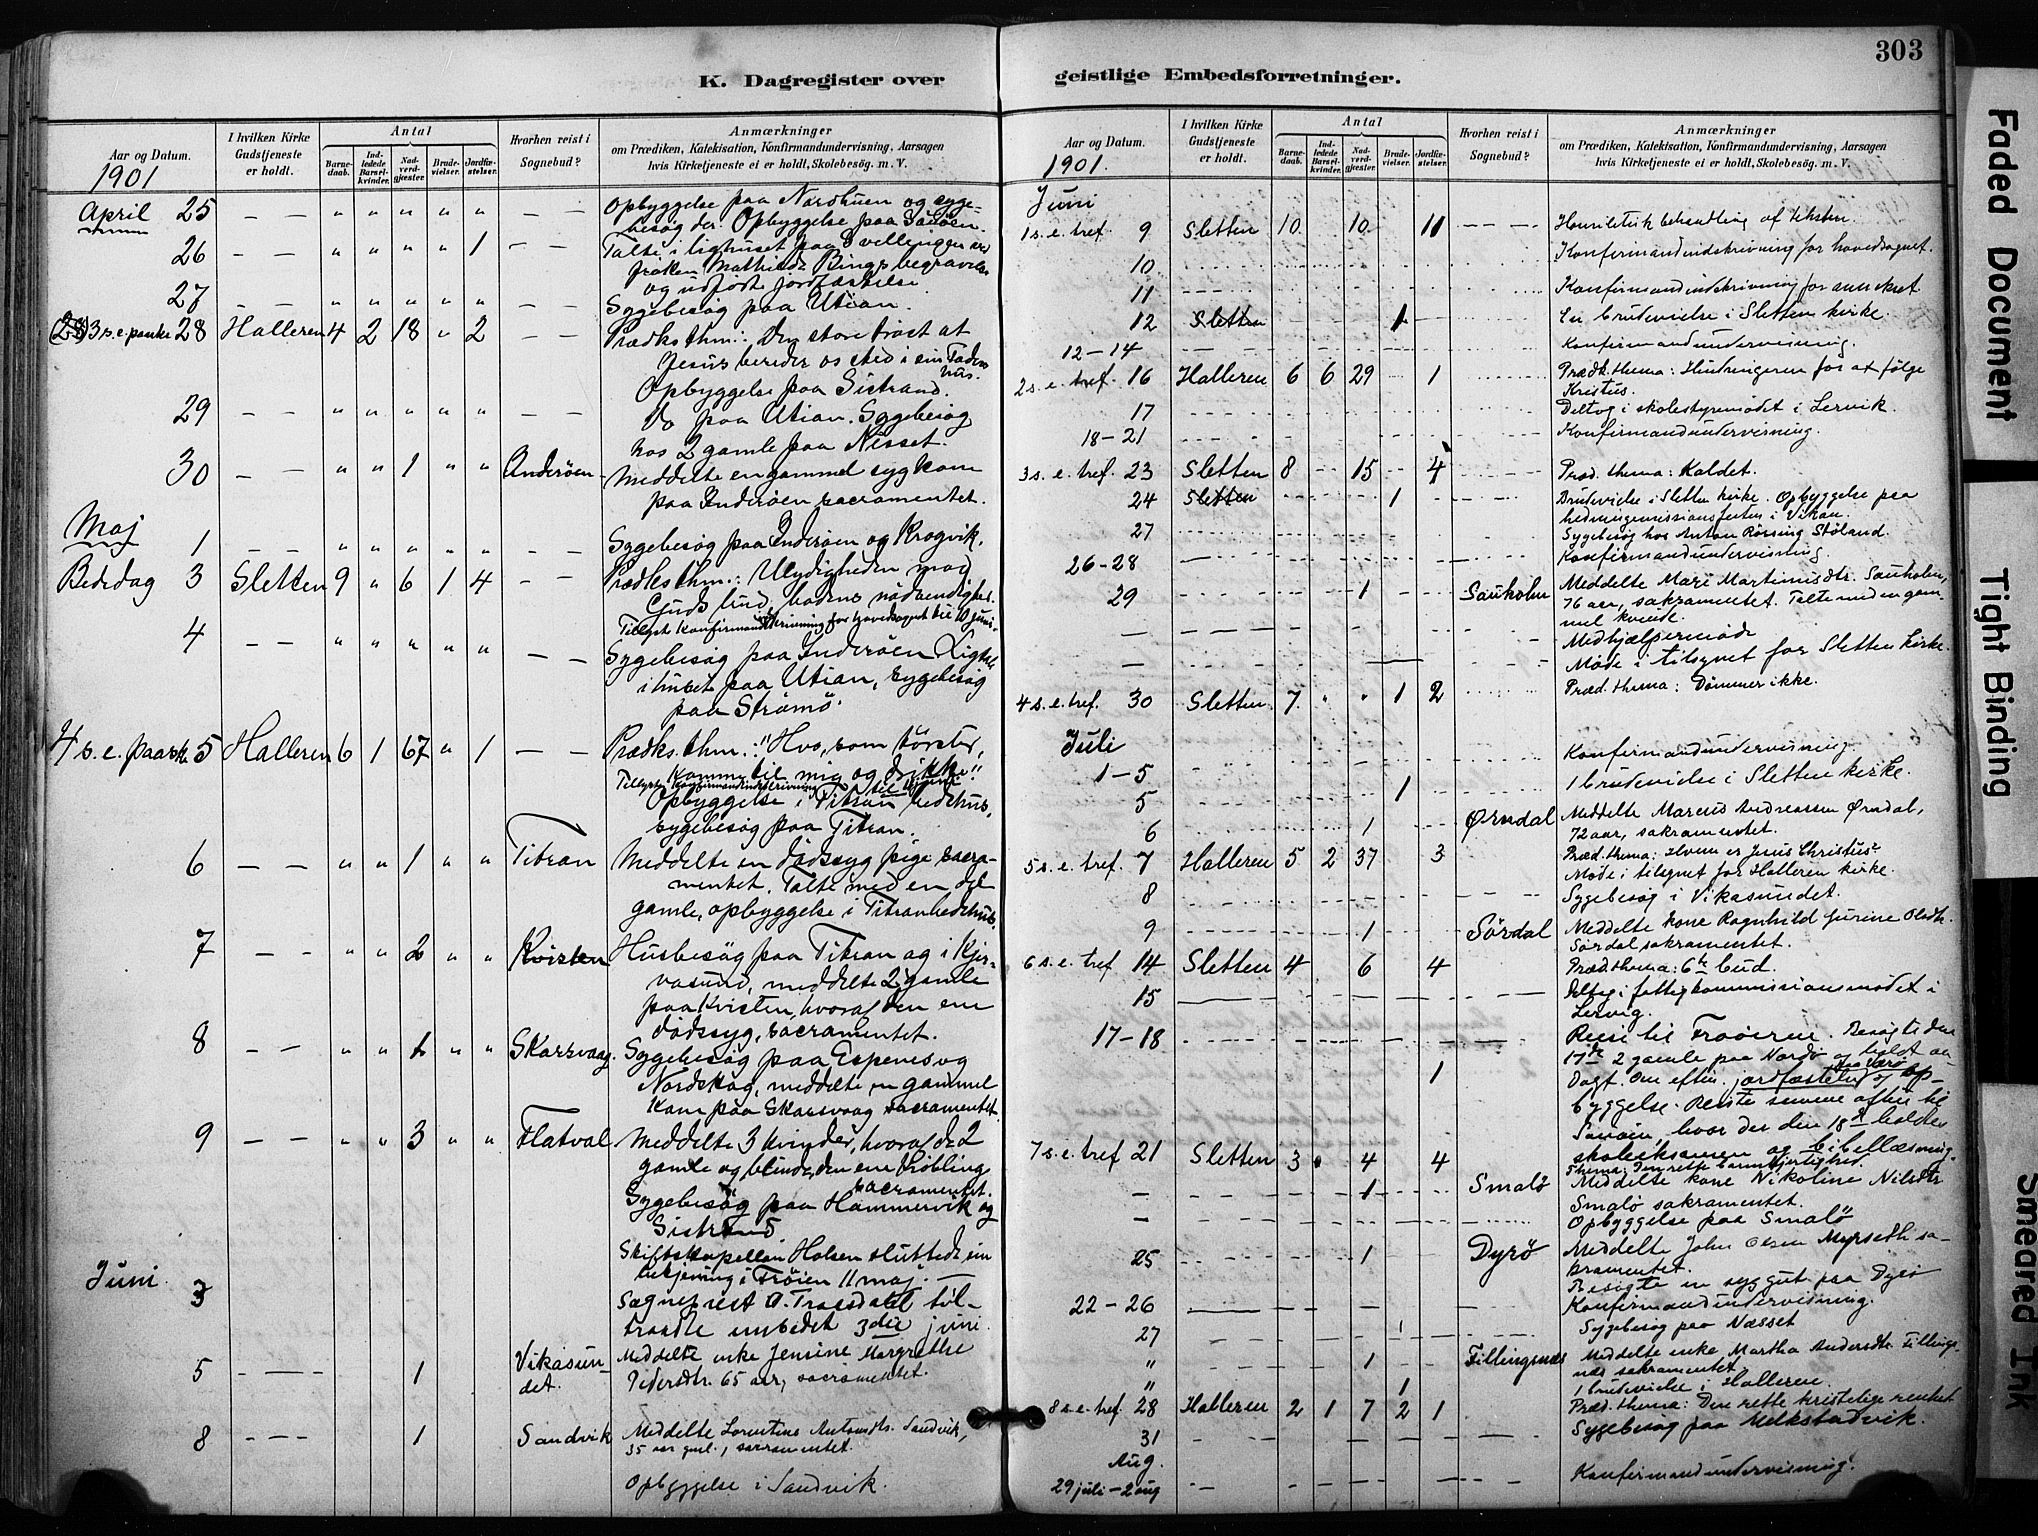 303
K. Dagregister over
geistlige Embedsforretninger.
Aar og Datum.
1901
I hvilken Kirke Gudstjeneste er holdt.
Antal
Barnedaab.
Indledede Barselkvinder.
Nadverdgjæster.
Brudevielser.
Jordfæstelser.
Hvorhen reist i Sognebud?
Anmærkninger
om Prædiken, Katekisation, Konfirmandundervisning, Aarsagen
hvis Kirketjeneste ei er holdt, Skolebesøg. m. V.
April 25 — — " " " " " — — Opbyggelse paa Nordhuen og syge-
besøg der. Opbyggelse paa Sauøen.
26 — — " " " " 1 — — Talte i lighuset paa Svellingen ved
frøken Mathilde Bings begravelse
og udførte jordfæstelse.
27 — — " " " " " — — Sygebesøg paa Utian.
(28) 3 s. e. paaske 28 Halleren 4 2 18 " 2 Prædks thm.: Den store trøst at
Jesus bereder os sted i sin Faders
hus.
Opbyggelse paa Sistrand.
29 — — " " " " " — — Do paa Utian. Sygebesøg
hos 2 gamle paa Nesset.
30 — — " " 1 " " Inderøen Meddelte en gammel syg kone
paa Inderøen sacramentet.
Maj
1 — — " " " " " — — Sygebesøg paa Inderøen og Krogvik.
Bededag 3 Sletten 9 " 6 1 4 — — Prædks thm.: Ulydigheden mod
Guds bud, bodens nødvendighet.
Tillyst konfirmandindskrivning for hovedsognet til 10 juni.
4 — — " " " " " — — Sygebesøg paa Inderøen
i huset paa Utian, sygebesøg
paa Strømø.
4 s. e. paask. 5 Halleren 6 1 67 " 1 — — Prædks. thm.: "Hvo, som tørster,
komme til mig og drikke"
Tillyst konfirmandindskrivning til
Opbyggelse i Titran bedehus,
sygebesøg paa Titran.
6 — — " " 1 " " Titran Meddelte en dødssyg pige sacra-
mentet. Talte med en del
gamle, opbyggelse i Titran bedehus.
7 — — " " 2 " " Kvisten Husbesøg paa Titran og i Kjer-
vasund, meddelte 2 gamle
paa Kvisten, hvoraf den ene
dødssyg, sacramentet.
8 — — " " 1 " " Skarsvaag Sygebesøg paa Espenes og
Nordskag, meddelte en gammel
kone paa Skarsvaag sacramentet.
9 — — " " 3 " " Flatval Meddelte 3 kvinder, hvoraf de 2
gamle og blinde, den ene
sacramentet.
Sygebesøg paa Hammervik og
Sistrand.
Skibskapellan Holsen sluttede sin
betjening i Frøien 11 maj. —
Juni 3 Sognepræst O. Traasdahl til-
traadte embedet 3die juni.
5 — — — 1 Vikasun-
det. Meddelte enke Jensine Margrethe
Pedersdtr. 65 aar, sacramentet.
8 — — — 1 Sandvik Meddelte Lorentine Antonsdtr. Sandvik,
35 aar gml., sacramentet.
Opbyggelse i Sandvik.
Aar og Datum.
1901.
I hvilken Kirke Gudstjeneste er holdt.
Antal
Barnedaab.
Indledede Barselkvinder.
Nadverdgjæster.
Brudevielser.
Jordfæstelser.
Hvorhen reist i Sognebud?
Anmærkninger
om Prædiken, Katekisation, Konfirmandundervisning, Aarsagen
hvis Kirketjeneste ei er holdt, Skolebesøg. m. V.
Juni
1 s. e. tref. 9 Sletten 10 10 11 Homiletisk behandling af teksten.
10 Konfirmandindskrivning for hovedsognet.
11 Konfirmandindskrivning for annekset.
12 Sletten 1 En brudevielse i Sletten kirke.
12–14 Konfirmandundervisning.
2 s. e. tref. 16 Halleren 6 6 29 1 Prædk. thema: Hindringerne for at følge
Kristus.
17 Deltog i skolestyremødet i Lervik.
18–21 Konfirmandundervisning.
3 s. e. tref. 23 Sletten 8 15 4 Præd. thema: Kaldet.
24 Sletten 1 Brudevielse i Sletten kirke. Opbyggelse paa
hedningemissionsfesten i Vikan.
27 Sygebesøg hos Anton Rørsing Støland.
26–28 Konfirmandundervisning.
29 1 Sauholm Meddelte Mari Martinusdtr. Sauholm,
76 aar, sakramentet. Talte med en gam-
mel kvinde.
Medhjælpermøde
Møde i tilsynet for Sletten kirke.
4 s. e. tref. 30 Sletten 7 " " 1 2 Præd. thema: Dømmer ikke.
Juli
1–5 Konfirmandundervisning
5 1 1 brudevielse i Sletten kirke.
6 1 Ørndal Meddelte Marius Andreassen Ørndal,
72 aar, sakramentet.
5 s. e. tref. 7 Halleren 5 2 37 3 Præd. thema: Hvem er Jesus Christus?
Møde i tilsynet for Halleren kirke.
8 Sygebesøg i Vikasundet.
9 1 Sørdal Meddelte kone Ragnhild Jurine Olsdtr.
Sørdal sakramentet.
6 s. e. tref. 14 Sletten 4 6 4 Præd. thema: 6te bud.
15 Deltog i fattigkommissionsmødet i
Lervig.
17–18 Reise til Frøiene. Besøgte den
17de 2 gamle paa Nordø og holdt an-
1 dagt. Om eftm. jordfæstelse og op-
byggelse. Reiste samme aften til
Sauøen, hvor der den 18de holdtes
skoleeksamen og bibellæsning.
7 s. e. tref 21 Sletten 3 4 4 Thema: Den rette barmhjertighed.
— 1 Smalø Meddelte kone Nikoline Nilsdtr
Smalø sakramentet.
— Opbyggelse paa Smalø
25 1 Dyrø Meddelte John Olsen Myrseth sa-
kramentet.
Besøgte en syg gut paa Dyrø
22–26 Konfirmandundervisning.
27 Sygebesøg paa Næsset
" 1 Fillingsnæs Meddelte enke Martha Andersdtr. Fillings-
næs sakramentet.
" 1 1 brudevielse i Halleren.
8 s. e. tref 28 Halleren 2 1 7 2 1 Præd. thema: Den rette kristelige renhet
31 Sygebesøg paa Melkstadvik.
Aug.
29 juli – 2 aug Konfirmandundervisning.
Faded Document
Tight Binding
Smeared Ink